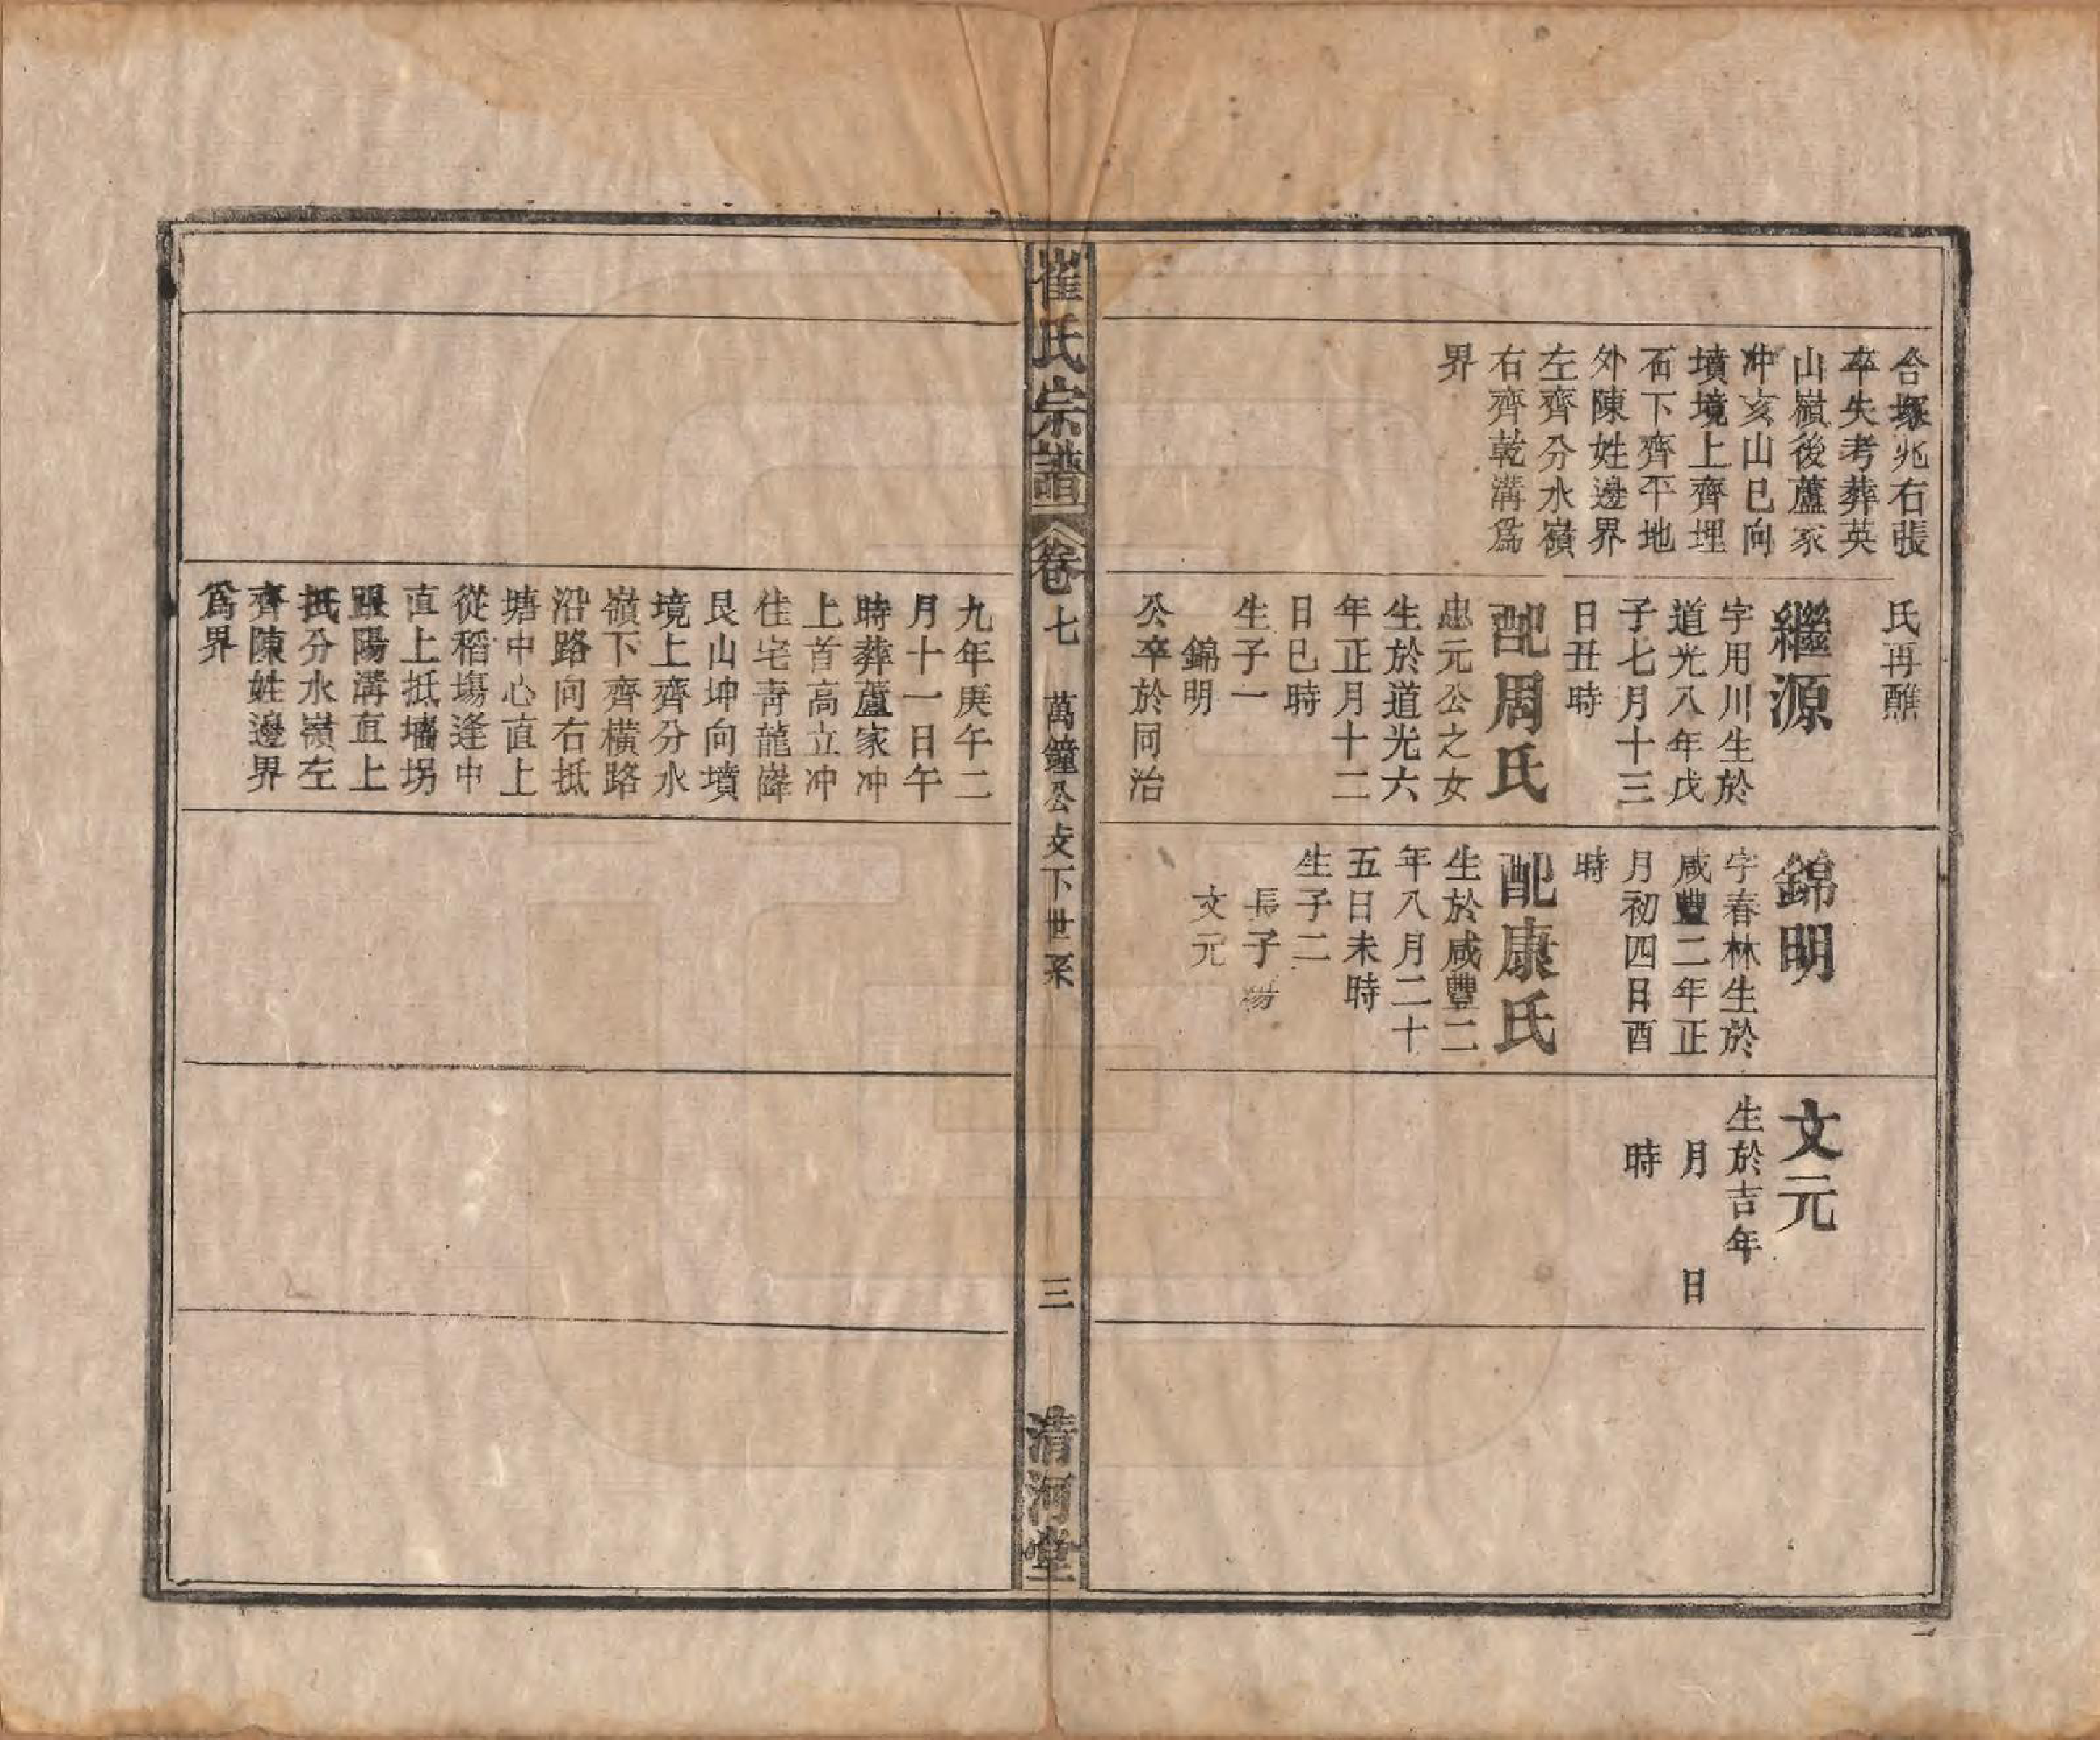 合塚兆右張
卒失考葬英
山嶺後蘆家
冲亥山巳向
墳境上齊埋
石下齊平地
外陳姓邊界
左齊分水嶺
右齊乾溝爲
界
氏再醮
繼源
字用川生於
道光八年戊
子七月十三
日丑時
配周氏
忠元公之女
生於道光六
年正月十二
日巳時
生子一
錦明
公卒於同治
錦明
字春林生於
咸豐二年正
月初四日酉
時
配康氏
生於咸豐二
年八月二十
五日未時
生子二
長子殤
文元
文元
生於吉年
月　日
時
崔氏宗譜 卷七 萬鐘公支下世系 三 清河堂
九年庚午二
月十一日午
時葬蘆家冲
上首高立冲
住宅靑龍嶂
艮山坤向墳
境上齊分水
嶺下齊橫路
沿路向右抵
塘中心直上
從稻塲逢中
直上抵墻垴
跟陽溝直上
抵分水嶺左
齊陳姓邊界
爲界